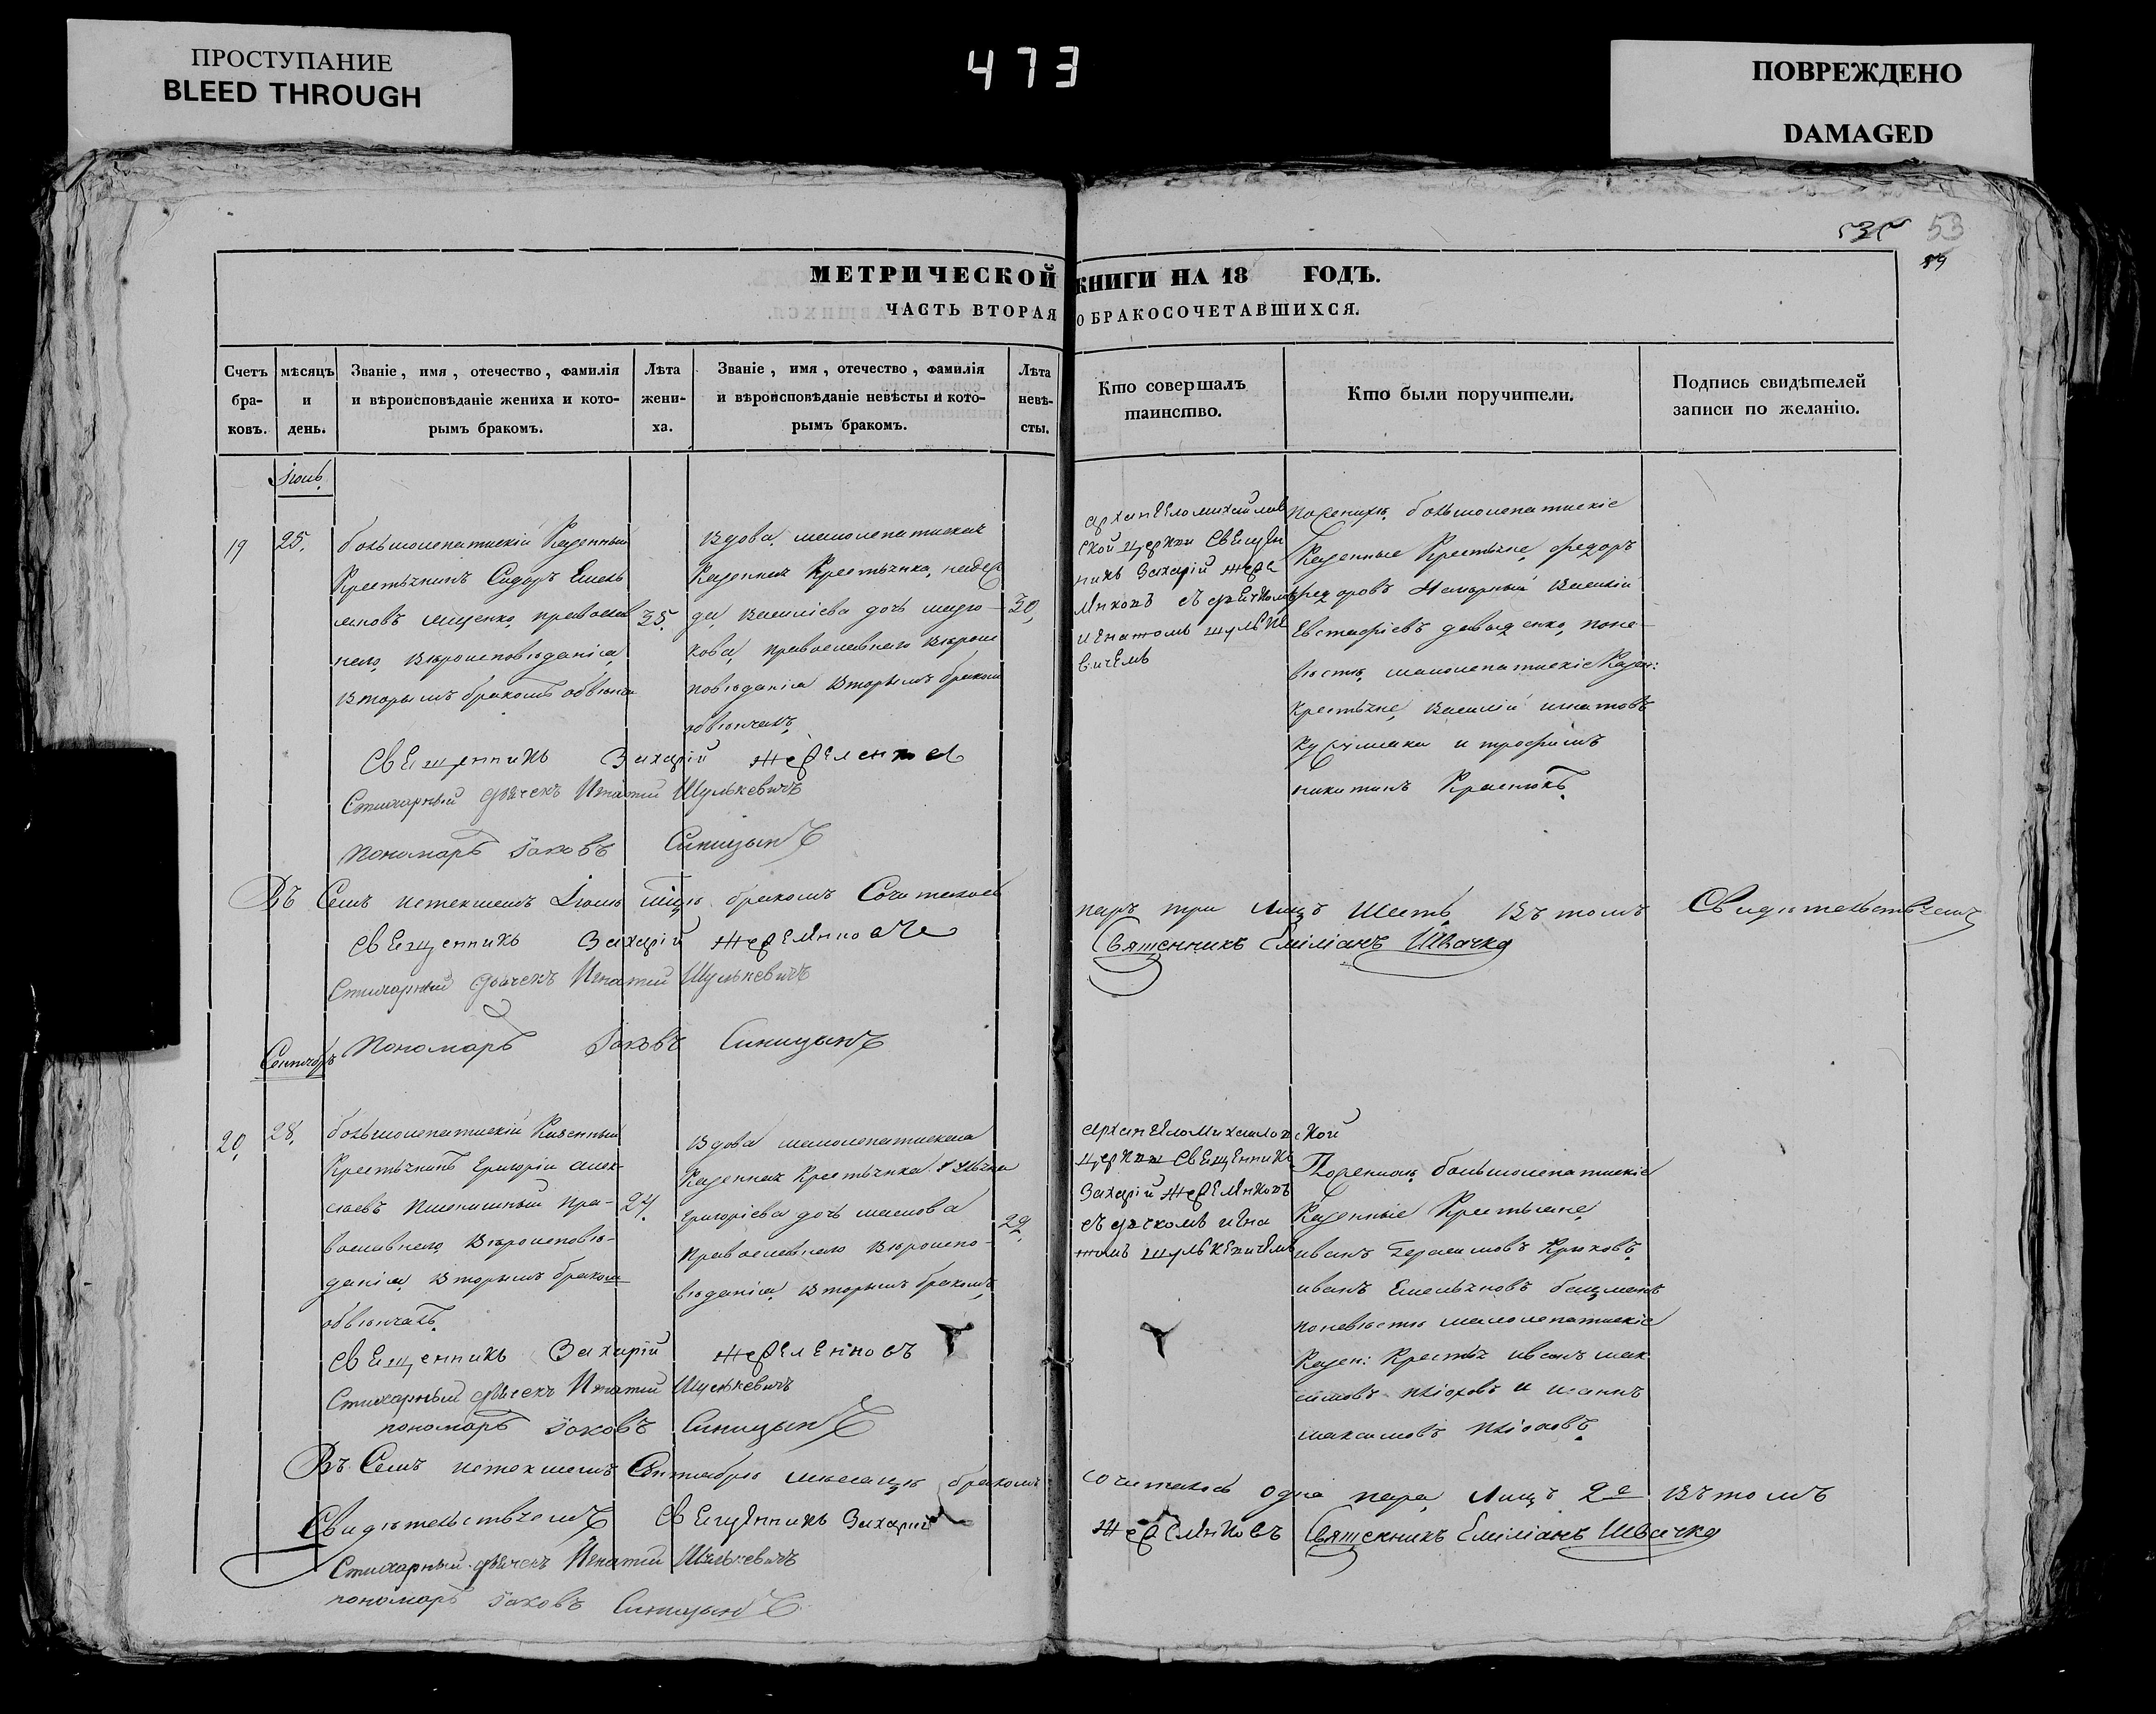 ПРОСТУПАНИЕ
BLEED THROUGH
473
ПОВРЕЖДЕНО
DAMAGED
53
89
МЕТРИЧЕСКОЙ КНИГИ НА 18 ГОДЪ.
ЧАСТЬ ВТОРАЯ О БРАКОСОЧЕТАВШИХСЯ.
Счетъ бра-ковъ.
мѣсяцъ и день.
Званіе, имя, отечество, фамилія
и вѣроисповѣданіе жениха и кото-
рымъ бракомъ.
Лѣта жени-ха.
Званіе, имя, отечество, фамилія
и вѣроисповѣданіе невѣсты и кото-
рымъ бракомъ.
Лѣта невѣ-сты.
Кто совершалъ
таинство.
Кто были поручители.
Подпись свидѣтелей
записи по желанію.
19
25.
большолепатискій Казенный
Крестьянинъ Сидоръ Емель
яновъ Ищенко, православ
наго вѣроисповѣданія
вторымъ бракомъ обвѣнча
35.
вдова малолепатиская
Казенная Крестьянка, надеж
да, Василіева дочь
кова, православнаго вѣрои
повѣданія вторымъ бракомъ
обвѣнчанъ
30,
архангеломихайлов
ской церкви Священ
никъ Захарій Жере
мяковъ съ дячкомъ
игнатомъ шульке
вичемъ
по жениху большолепатискіе
Казенные Крестьяне, федоръ
федоровъ Василій
Евстафіевъ давыденко, поне-
вѣстѣ, малолепатискіе Казен:
крестьяне, василій игнатовъ
и трофимъ
никитинъ
Священникъ Захарій
Стихарный дьячекъ Игнатій Шулькевичъ
Пономарь Іаковъ Синицынъ
Въ Семъ истекшемъ Іюлѣ мцѣ бракомъ Сочеталось
паръ три лицъ шесть въ томъ Свидѣтельствуемъ
Священникъ Захарій
Священникъ Еміліанъ Швачка
Стихарный дьячекъ Игнатій Шулькевичъ
Пономарь Іаковъ Синицынъ
Сентябрь
20,
28,
большолепатискій Казенный
Крестьянинъ Григорій алек-
сіевъ Пшеничный пра-
вославнаго вѣроисповѣ-
данія, вторымъ бракомъ
обвѣнчанъ
24.
вдова малолепатиская
Казенная Крестьянка
Григоріева дочь маслова
православнаго вѣроиспо-
вѣданія, вторымъ бракомъ
29,
архангеломихайловской
церкви Священникъ
Захарій
съ дячкомъ игна
томъ шулькевичемъ
По жениху, большолепатискіе
Казенніе Крестьяне
иванъ Герасимовъ Крюковъ
иванъ Емельяновъ
поневѣстѣ малолепатискіе
Казен: Крестья иванъ мак
симовъ и
максимовъ
Священникъ Захарій
Стихарный дьячекъ Игнатій Шулькевичъ
пономарь Іаковъ Синицынъ
Въ Семъ истекшемъ Сентабрѣ мѣсяцѣ бракомъ
сочеталось одна пара, лицъ 2е въ томъ
Свидѣтельствуемъ Священникъ Захарій
Священникъ Еміліанъ Швачка
Стихарный дьячекъ Игнатій Шулькевичъ
пономарь Іаковъ Синицынъ